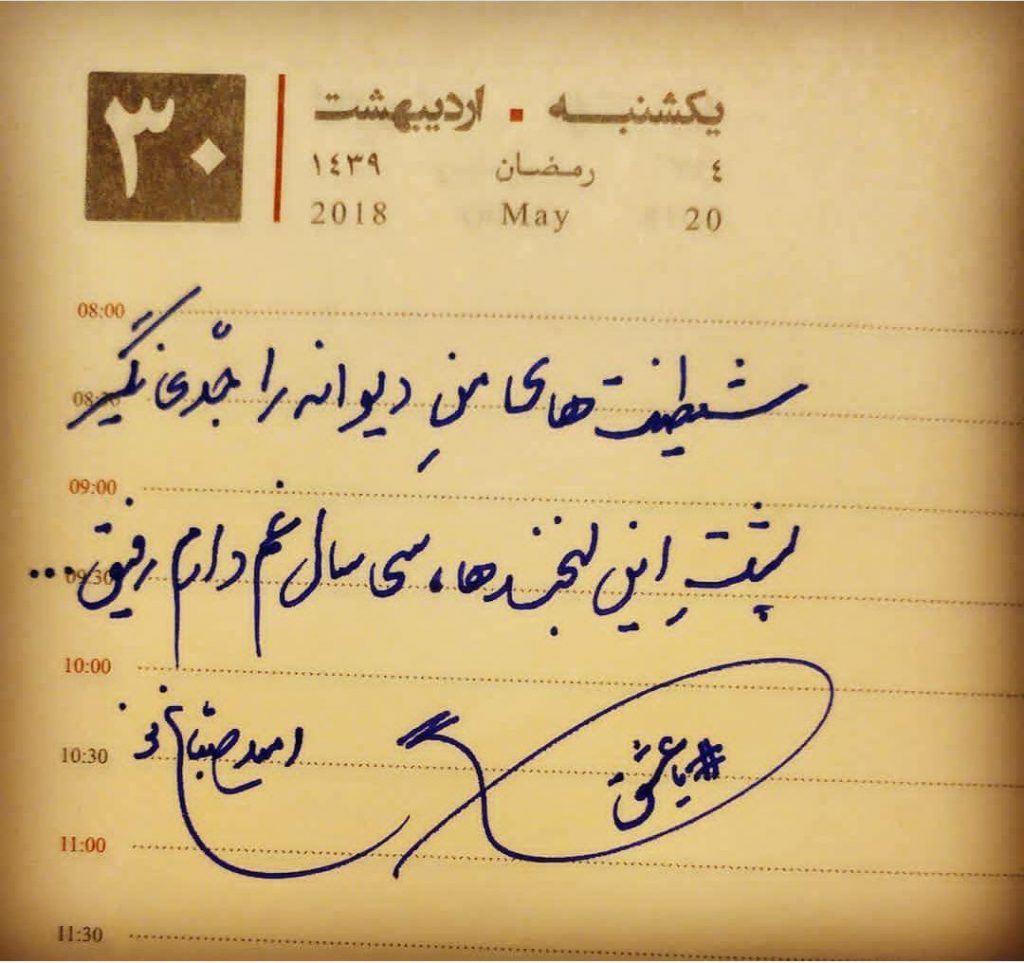 ۳۰
یکشنبه ▪ اردیبهشت
٤ رمضان ١٤٣٩
20 May 2018
08:00
شیطنت‌های منِ دیوانه را جّدی نگیر
08:30
09:00
پشتِ این لبخندها، سی سال غم دارم رفیق...
09:30
10:00
#یاعشق
امید صبّاغ نو
10:30
11:00
11:30